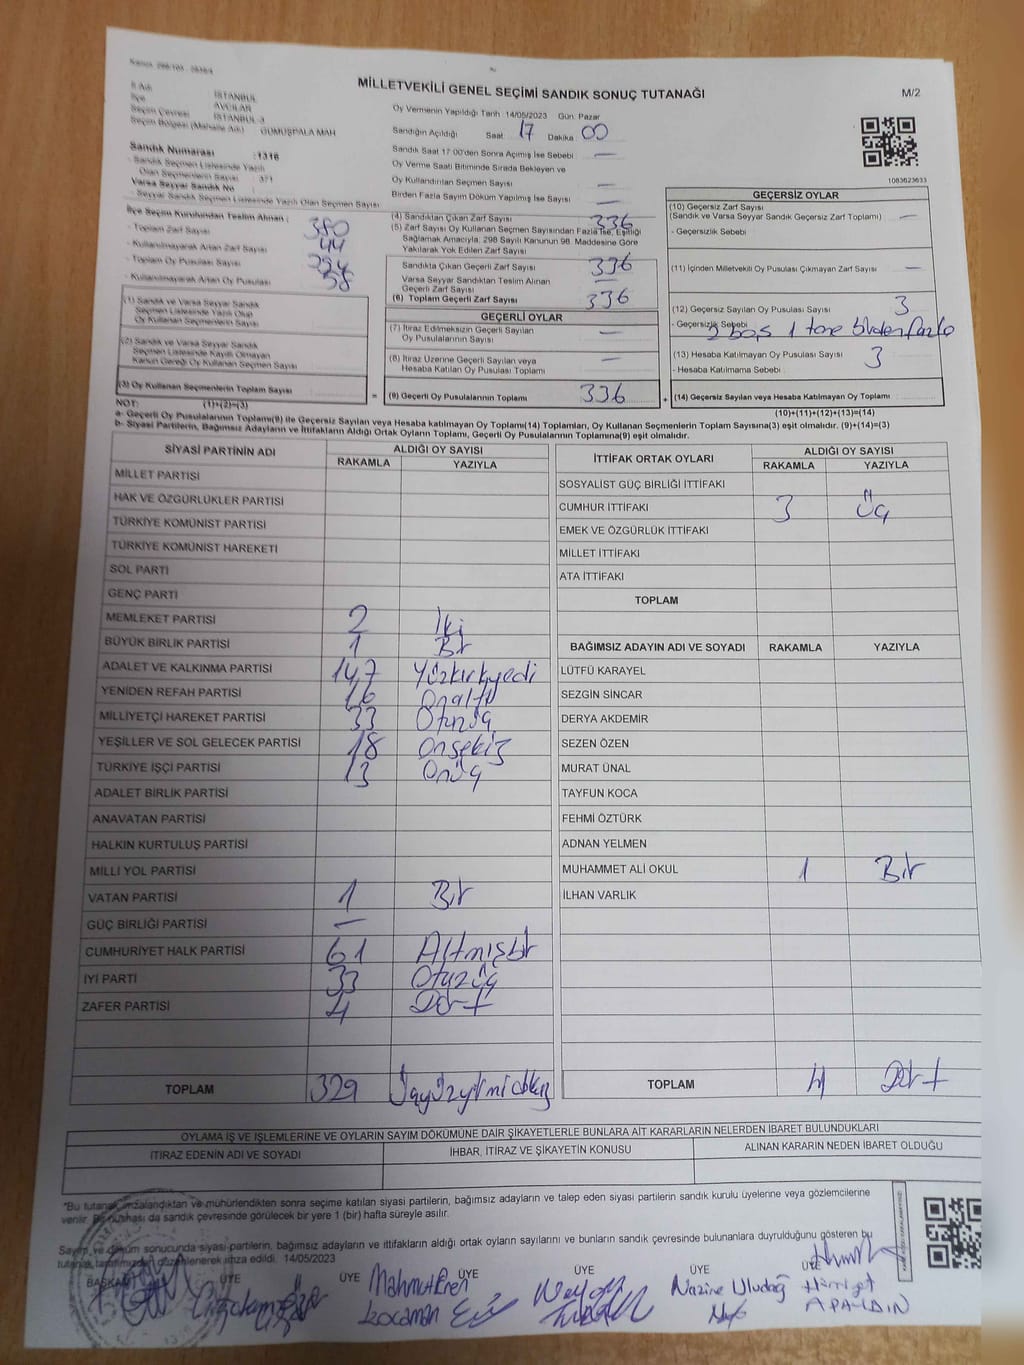 MİLLETVEKİLİ GENEL SEÇİMİ SANDIK SONUÇ TUTANAĞI
M/2
İl Adı İSTANBUL
İlçe AVCILAR
Seçim Çevresi İSTANBUL 3
Seçim Bölgesi (Mahalle Adı) GÜMÜŞPALA MAH
Sandık Numarası :1316
- Sandık Seçmen Listesinde Yazılı
Olan Seçmen Sayısı : 371
Varsa Seyyar Sandık No
- Seyyar Sandık Seçmen Listesinde Yazılı Olan Seçmen Sayısı
İlçe Seçim Kurulundan Teslim Alınan :
- Toplam Zarf Sayısı 380
- Kullanılmayarak Artan Zarf Sayısı 44
- Toplam Oy Pusulası Sayısı
- Kullanılmayarak Artan Oy Pusulası 58
(1) Sandık ve Varsa Seyyar Sandık
Seçmen Listesinde Yazılı Olup
Oy Kullanan Seçmenlerin Sayısı
(2) Sandık ve Varsa Seyyar Sandık
Seçmen Listesinde Kayıtlı Olmayan
Kanun Gereği Oy Kullanan Seçmen Sayısı
(3) Oy Kullanan Seçmenlerin Toplam Sayısı
Oy Vermenin Yapıldığı Tarih :14/05/2023 Gün: Pazar
Sandığın Açıldığı Saat 17 Dakika 00
Sandık Saat 17:00'den Sonra Açımış İse Sebebi —
Oy Verme Saati Bitiminde Sırada Bekleyen ve
Oy Kullandırılan Seçmen Sayısı —
Birden Fazla Sayım Döküm Yapılmış İse Sayısı —
(4) Sandıktan Çıkan Zarf Sayısı 336
(5) Zarf Sayısı Oy Kullanan Seçmen Sayısından Fazla İse, Eşitliği
Sağlamak Amacıyla, 298 Sayılı Kanunun 98. Maddesine Göre
Yakılarak Yok Edilen Zarf Sayısı
Sandıkta Çıkan Geçerli Zarf Sayısı 336
Varsa Seyyar Sandıktan Teslim Alınan
Geçerli Zarf Sayısı —
(6) Toplam Geçerli Zarf Sayısı 336
GEÇERLİ OYLAR
(7) İtiraz Edilmeksizin Geçerli Sayılan
Oy Pusulalarının Sayısı —
(8) İtiraz Üzerine Geçerli Sayılan veya
Hesaba Katılan Oy Pusulası Toplamı —
(9) Geçerli Oy Pusulalarının Toplamı 336
1083623633
GEÇERSİZ OYLAR
(10) Geçersiz Zarf Sayısı
(Sandık ve Varsa Seyyar Sandık Geçersiz Zarf Toplamı) —
- Geçersizlik Sebebi
(11) İçinden Milletvekili Oy Pusulası Çıkmayan Zarf Sayısı —
(12) Geçersiz Sayılan Oy Pusulası Sayısı 3
- Geçersizlik Sebebi 2 boş 1 tane birden fazla
(13) Hesaba Katılmayan Oy Pusulası Sayısı 3
- Hesaba Katılmama Sebebi
(14) Geçersiz Sayılan veya Hesaba Katılmayan Oy Toplamı
NOT: (1)+(2)=(3)
(10)+(11)+(12)+(13)=(14)
a- Geçerli Oy Pusulalarının Toplamı(9) ile Geçersiz Sayılan veya Hesaba katılmayan Oy Toplamı(14) Toplamları, Oy Kullanan Seçmenlerin Toplam Sayısına(3) eşit olmalıdır. (9)+(14)=(3)
b- Siyasi Partilerin, Bağımsız Adayların ve İttifakların Aldığı Ortak Oyların Toplamı, Geçerli Oy Pusulalarının Toplamına(9) eşit olmalıdır.
SİYASİ PARTİNİN ADI ALDIĞI OY SAYISI
RAKAMLA YAZIYLA
MİLLET PARTİSİ
HAK VE ÖZGÜRLÜKLER PARTİSİ
TÜRKİYE KOMÜNİST PARTİSİ
TÜRKİYE KOMÜNİST HAREKETİ
SOL PARTİ
GENÇ PARTİ
MEMLEKET PARTİSİ 2 İki
BÜYÜK BİRLİK PARTİSİ 1 Bir
ADALET VE KALKINMA PARTİSİ 147 Yüzkırkyedi
YENİDEN REFAH PARTİSİ 16 Onaltı
MİLLİYETÇİ HAREKET PARTİSİ 33 Otuzüç
YEŞİLLER VE SOL GELECEK PARTİSİ 18 Onsekiz
TÜRKİYE İŞÇİ PARTİSİ 13 Onüç
ADALET BİRLİK PARTİSİ
ANAVATAN PARTİSİ
HALKIN KURTULUŞ PARTİSİ
MİLLİ YOL PARTİSİ
VATAN PARTİSİ 1 Bir
GÜÇ BİRLİĞİ PARTİSİ —
CUMHURİYET HALK PARTİSİ 61 Altmışbir
İYİ PARTİ 33 Otuzüç
ZAFER PARTİSİ 4 Dört
TOPLAM 329 Üçyüzyirmidokuz
İTTİFAK ORTAK OYLARI ALDIĞI OY SAYISI
RAKAMLA YAZIYLA
SOSYALİST GÜÇ BİRLİĞİ İTTİFAKI
CUMHUR İTTİFAKI 3 Üç
EMEK VE ÖZGÜRLÜK İTTİFAKI
MİLLET İTTİFAKI
ATA İTTİFAKI
TOPLAM
BAĞIMSIZ ADAYIN ADI VE SOYADI RAKAMLA YAZIYLA
LÜTFÜ KARAYEL
SEZGİN SİNCAR
DERYA AKDEMİR
SEZEN ÖZEN
MURAT ÜNAL
TAYFUN KOCA
FEHMİ ÖZTÜRK
ADNAN YELMEN
MUHAMMET ALİ OKUL 1 Bir
İLHAN VARLIK
TOPLAM 4 Dört
OYLAMA İŞ VE İŞLEMLERİNE VE OYLARIN SAYIM DÖKÜMÜNE DAİR ŞİKAYETLERLE BUNLARA AİT KARARLARIN NELERDEN İBARET BULUNDUKLARI
İTİRAZ EDENİN ADI VE SOYADI İHBAR, İTİRAZ VE ŞİKAYETİN KONUSU ALINAN KARARIN NEDEN İBARET OLDUĞU
*Bu tutanak imzalandıktan ve mühürlendikten sonra seçime katılan siyasi partilerin, bağımsız adayların ve talep eden siyasi partilerin sandık kurulu üyelerine veya gözlemcilerine
verilir. Bir nüshası da sandık çevresinde görülecek bir yere 1 (bir) hafta süreyle asılır.
Sayım ve döküm sonucunda siyasi partilerin, bağımsız adayların ve ittifakların aldığı ortak oyların sayılarını ve bunların sandık çevresinde bulunanlara duyrulduğunu gösteren bu
tutanak tarafımızdan düzenlenerek imza edildi. 14/05/2023
BAŞKAN ÜYE ÜYE ÜYE ÜYE ÜYE ÜYE
Mahmut Eren
Kocaman
Nazire Uludağ
Hürriyet
APAYDIN